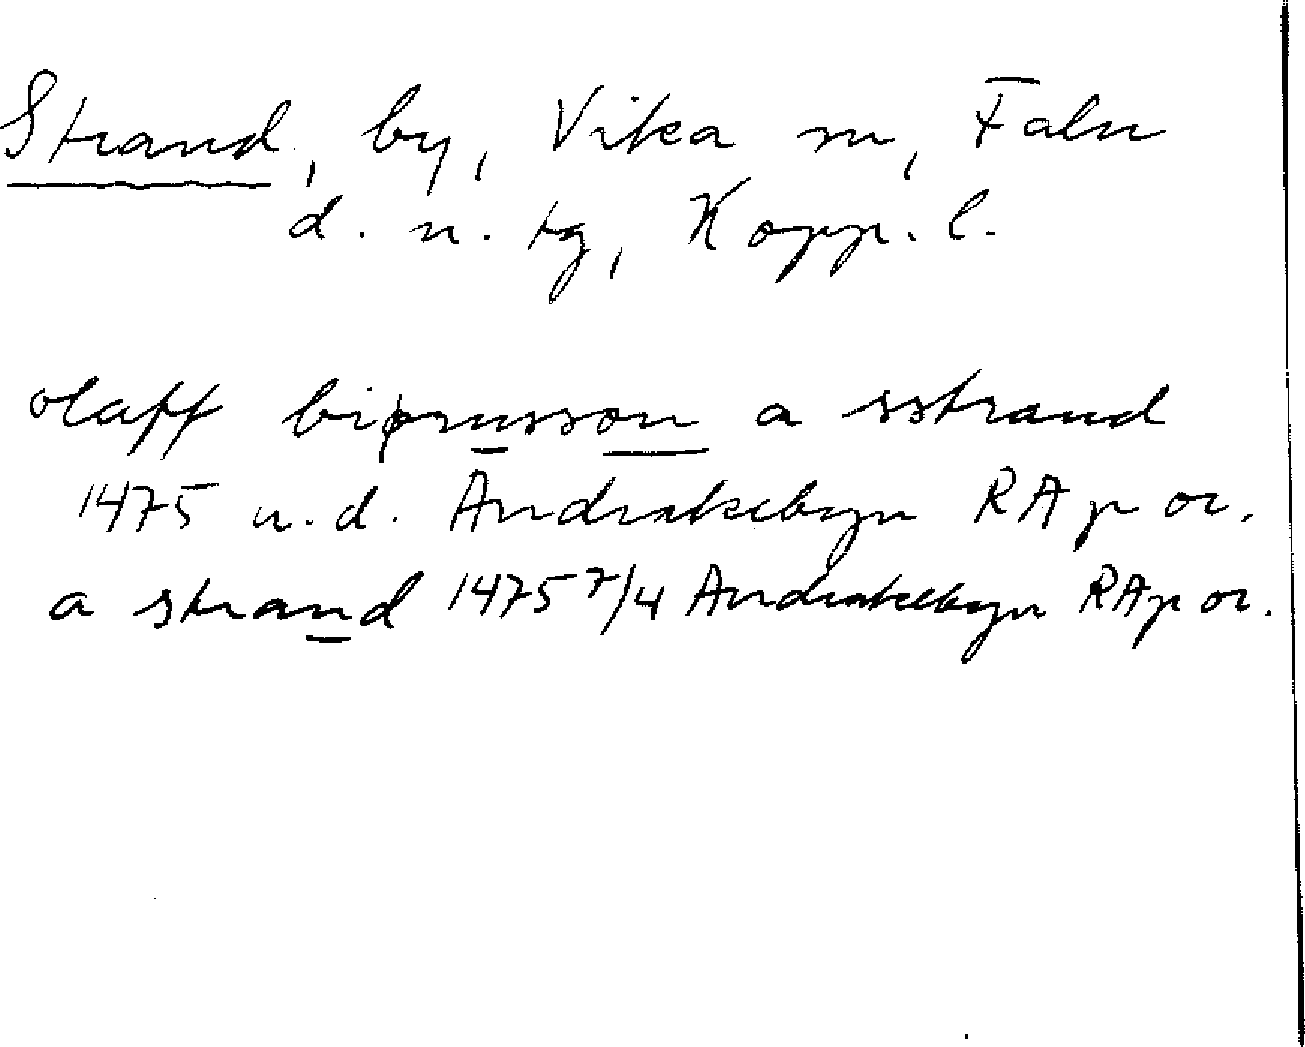 Strand, by, Vika sn, Falu
d. n. tg, Kopp. l.
olaff biørnsson a sstrand
1475 u.d. Andersbebyn RAp or.
a strand 1475 7/4 RAp or.